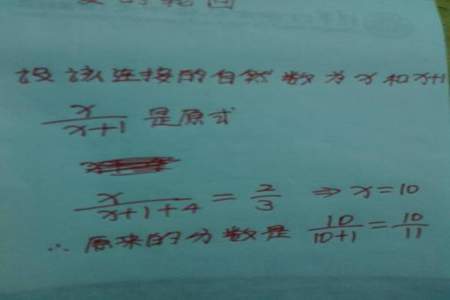 的轮回
设该连接的自然数为x和x+1
x/x+1 是原式
x/x+1+4 = 2/3 ⇒ x=10
∴ 原来的分数是 10/10+1 = 10/11